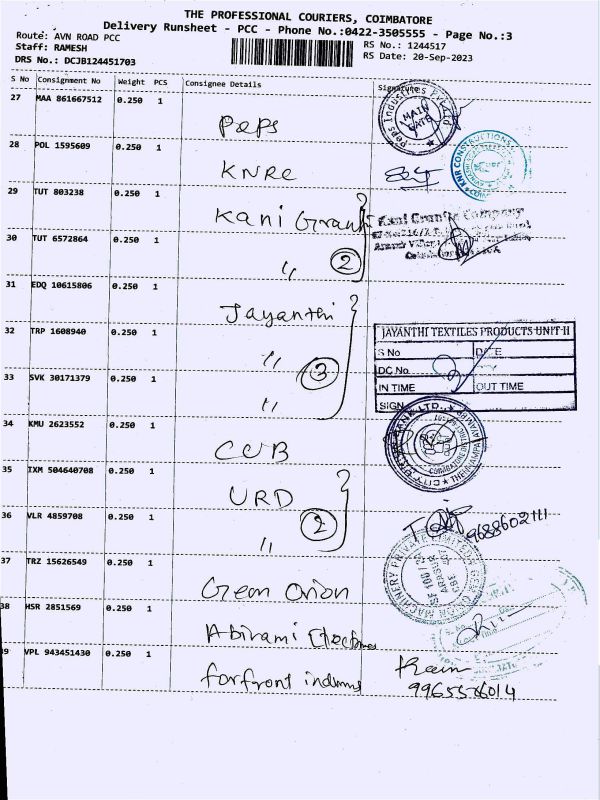 THE PROFESSIONAL COURIERS, COIMBATORE
Delivery Runsheet - PCC - Phone No.:0422-3505555 - Page No.:3
Route: AVN ROAD PCC
RS No.: 1244517
Staff: RAMESH
RS Date: 20-Sep-2023
DRS No.: DCJB124451703
S No Consignment No Weight PCS Consignee Details Signature
27 MAA 861667512 0.250 1
Peps
Peps Industries Pvt Ltd
MAIN GATE
28 POL 1595609 0.250 1
KNRC
KNR CONSTRUCTIONS
29 TUT 803238 0.250 1
Kani Granite
Kani Granite Company
30 TUT 6572864 0.250 1
" 2
31 EDQ 10615806 0.250 1
Jayanthi
32 TRP 1608940 0.250 1
" 3
JAYANTHI TEXTILES PRODUCTS UNIT II
S No DATE
DC No.
IN TIME OUT TIME
SIGN
33 SVK 30171379 0.250 1
"
34 KMU 2623552 0.250 1
CUB
CITY UNION BANK LTD.
35 IXM 504640708 0.250 1
URD
36 VLR 4859708 0.250 1
" 2
9688602111
37 TRZ 15626549 0.250 1
Green Orion
38 HSR 2851569 0.250 1
Abirami
39 VPL 943451430 0.250 1
forfront
9965576014